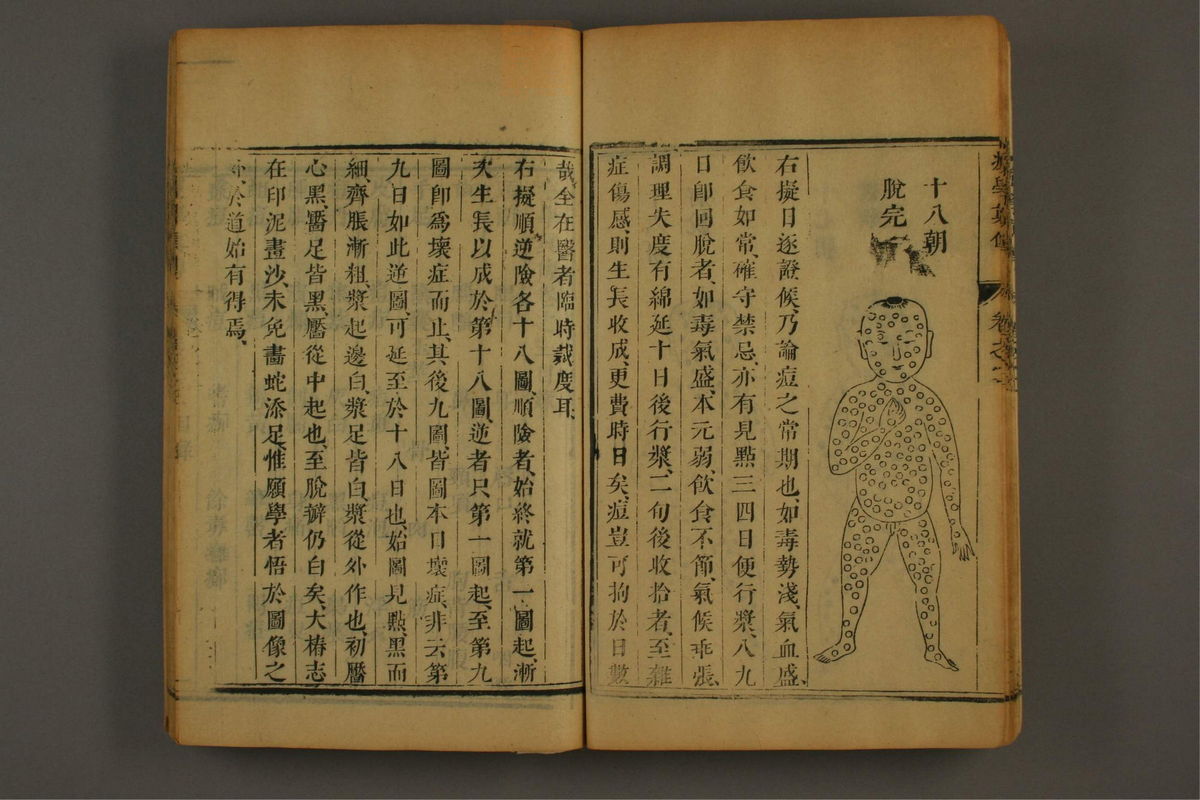 十八朝
脫完
右擬日逐證候、乃論痘之常期也、如毒勢淺、氣血盛、
飲食如常、確守禁忌、亦有見點三四日便行漿、八九
日卽回脫者、如毒氣盛、本元弱、飲食不節、氣候乖張、
調理失度、有綿延十日後行漿、二旬後收拾者、至雜
症傷感、則生長收成、更費時日矣、痘豈可拘於日數
哉、全在醫者臨時裁度耳、
右擬順逆險各十八圖、順險者、始終就第一圖起、漸
次生長以成於第十八圖、逆者只第一圖起、至第九
圖卽爲壞症而止、其後九圖皆圖本日壞症、非云第
九日如此逆圖、可延至於十八日也、始圖見點、黑而
細、齊脹漸粗、漿起邊白、漿足皆白、漿從外作也、初靨
心黑、靨足皆黑、靨從中起也、至脫癬仍白矣、大椿志
在印泥畫沙、未免畫蛇添足、惟願學者悟於圖像之
外、於道始有得焉、